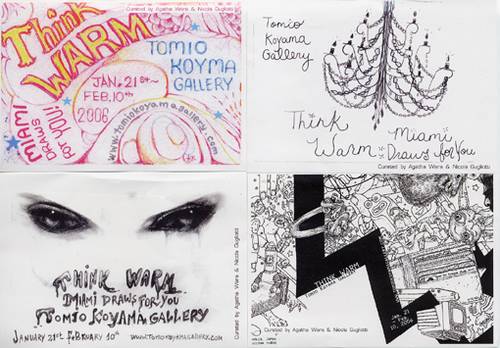 Curated by Agatha Wara & Nicole Gugliotti
Think
WARM
TOMIO
KOYMA
GALLERY
JAN. 21st~
FEB. 10th
2006
MIAMI
DRAWS
FOR YOU!
www.tomiokoyamagallery.com
Tomio
Koyama
Gallery
Think
Warm:
Miami
Draws for You
Curated by Agatha Wara & Nicole Gugliotti
THINK WARM
MIAMI DRAWS FOR YOU
TOMIO KOYAMA GALLERY
JANUARY 21st FEBRUARY 10th
www.Tomiokoyamagallery.com
Curated by Agatha Wara & Nicole Gugliotti
THINK WARM
Jan. 21
10, 2006
Curated by Agatha Wara & Nicole Gugliotti